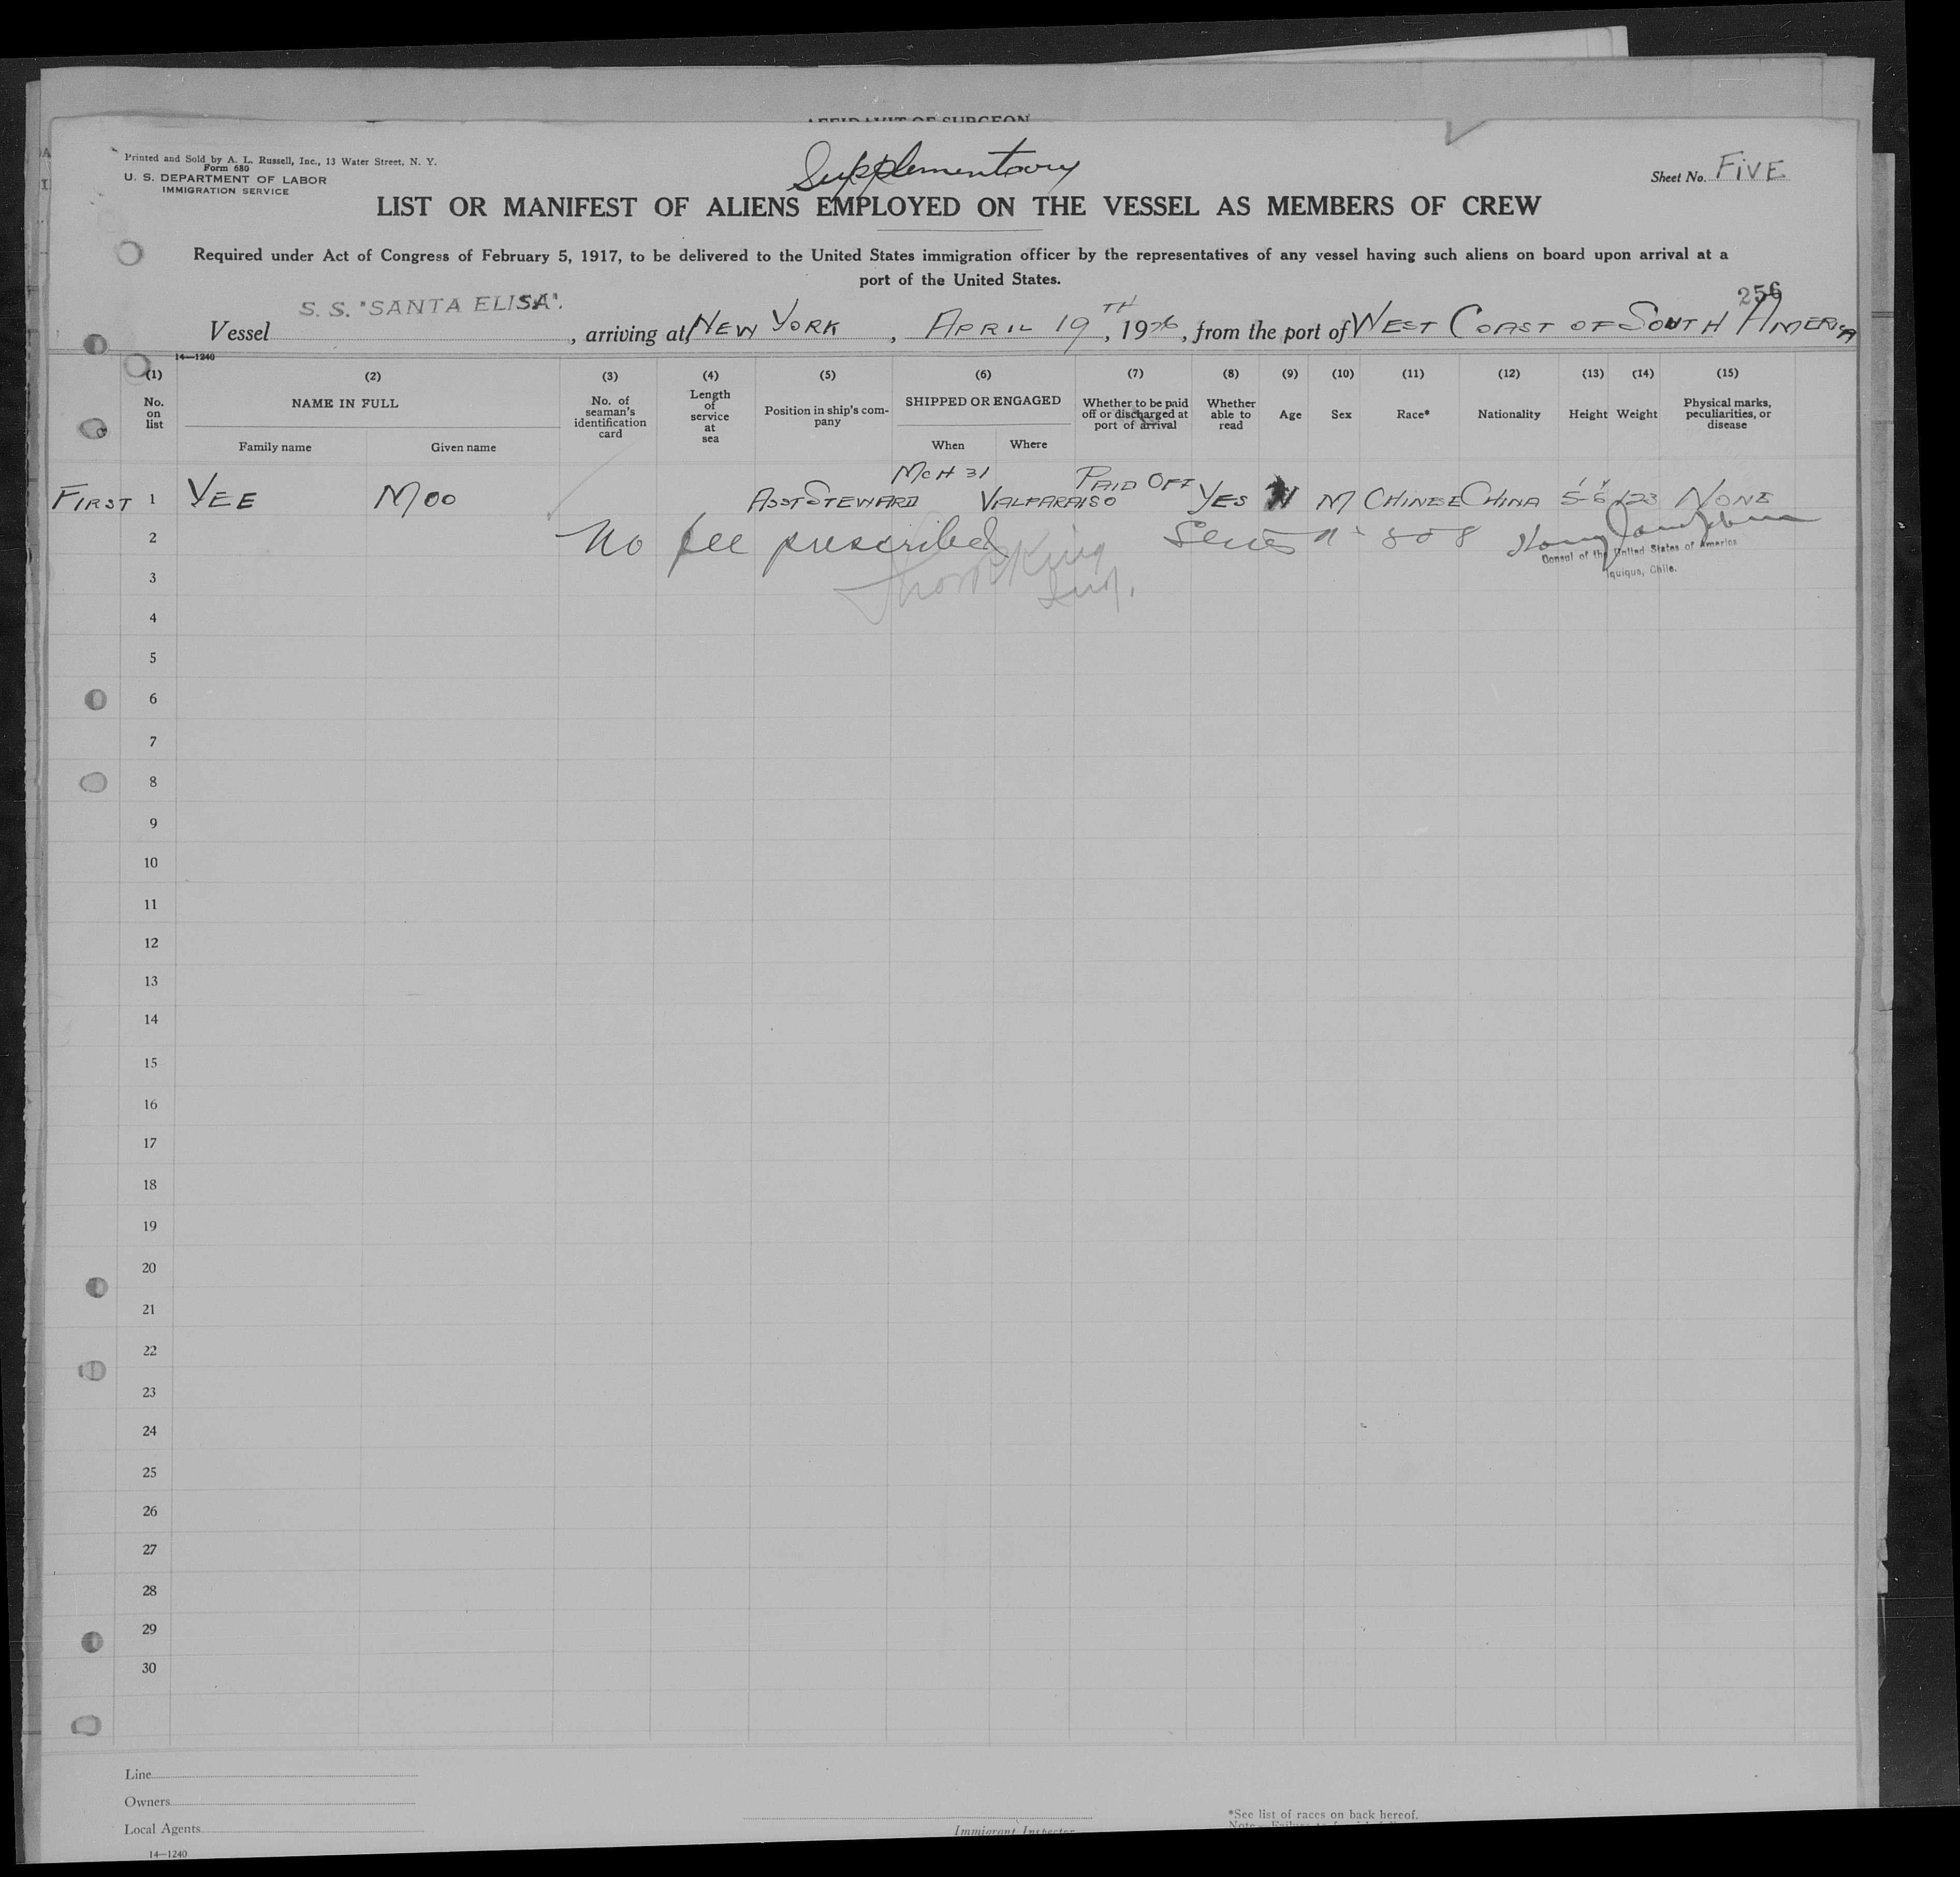 AFFIDAVIT OF SURGEON
Printed and Sold by A. L. Russell, Inc., 13 Water Street, N. Y.
Form 680
U. S. DEPARTMENT OF LABOR
IMMIGRATION SERVICE
Supplementary
Sheet No. FIVE
LIST OR MANIFEST OF ALIENS EMPLOYED ON THE VESSEL AS MEMBERS OF CREW
Required under Act of Congress of February 5, 1917, to be delivered to the United States immigration officer by the representatives of any vessel having such aliens on board upon arrival at a
port of the United States.
256
Vessel S. S. "SANTA ELISA". , arriving at NEW YORK , APRIL 19TH , 1926 , from the port of WEST COAST OF SOUTH AMERICA
14—1240
(1) (2) (3) (4) (5) (6) (7) (8) (9) (10) (11) (12) (13) (14) (15)
No. on list NAME IN FULL No. of seaman's identification card Length of service at sea Position in ship's com- pany SHIPPED OR ENGAGED Whether to be paid off or discharged at port of arrival Whether able to read Age Sex Race* Nationality Height Weight Physical marks, peculiarities, or disease
Family name Given name When Where
FIRST 1 YEE MOO ASST STEWARD MCH 31 VALPARAISO PAID OFF YES M CHINESE CHINA 5' 6" 123 NONE
2 No fee prescribed
Consul of the United States of America
Iquique, Chile.
3
Insp.
4
5
6
7
8
9
10
11
12
13
14
15
16
17
18
19
20
21
22
23
24
25
26
27
28
29
30
Line
Owners
Local Agents
Immigrant Inspector
*See list of races on back hereof.
14—1240